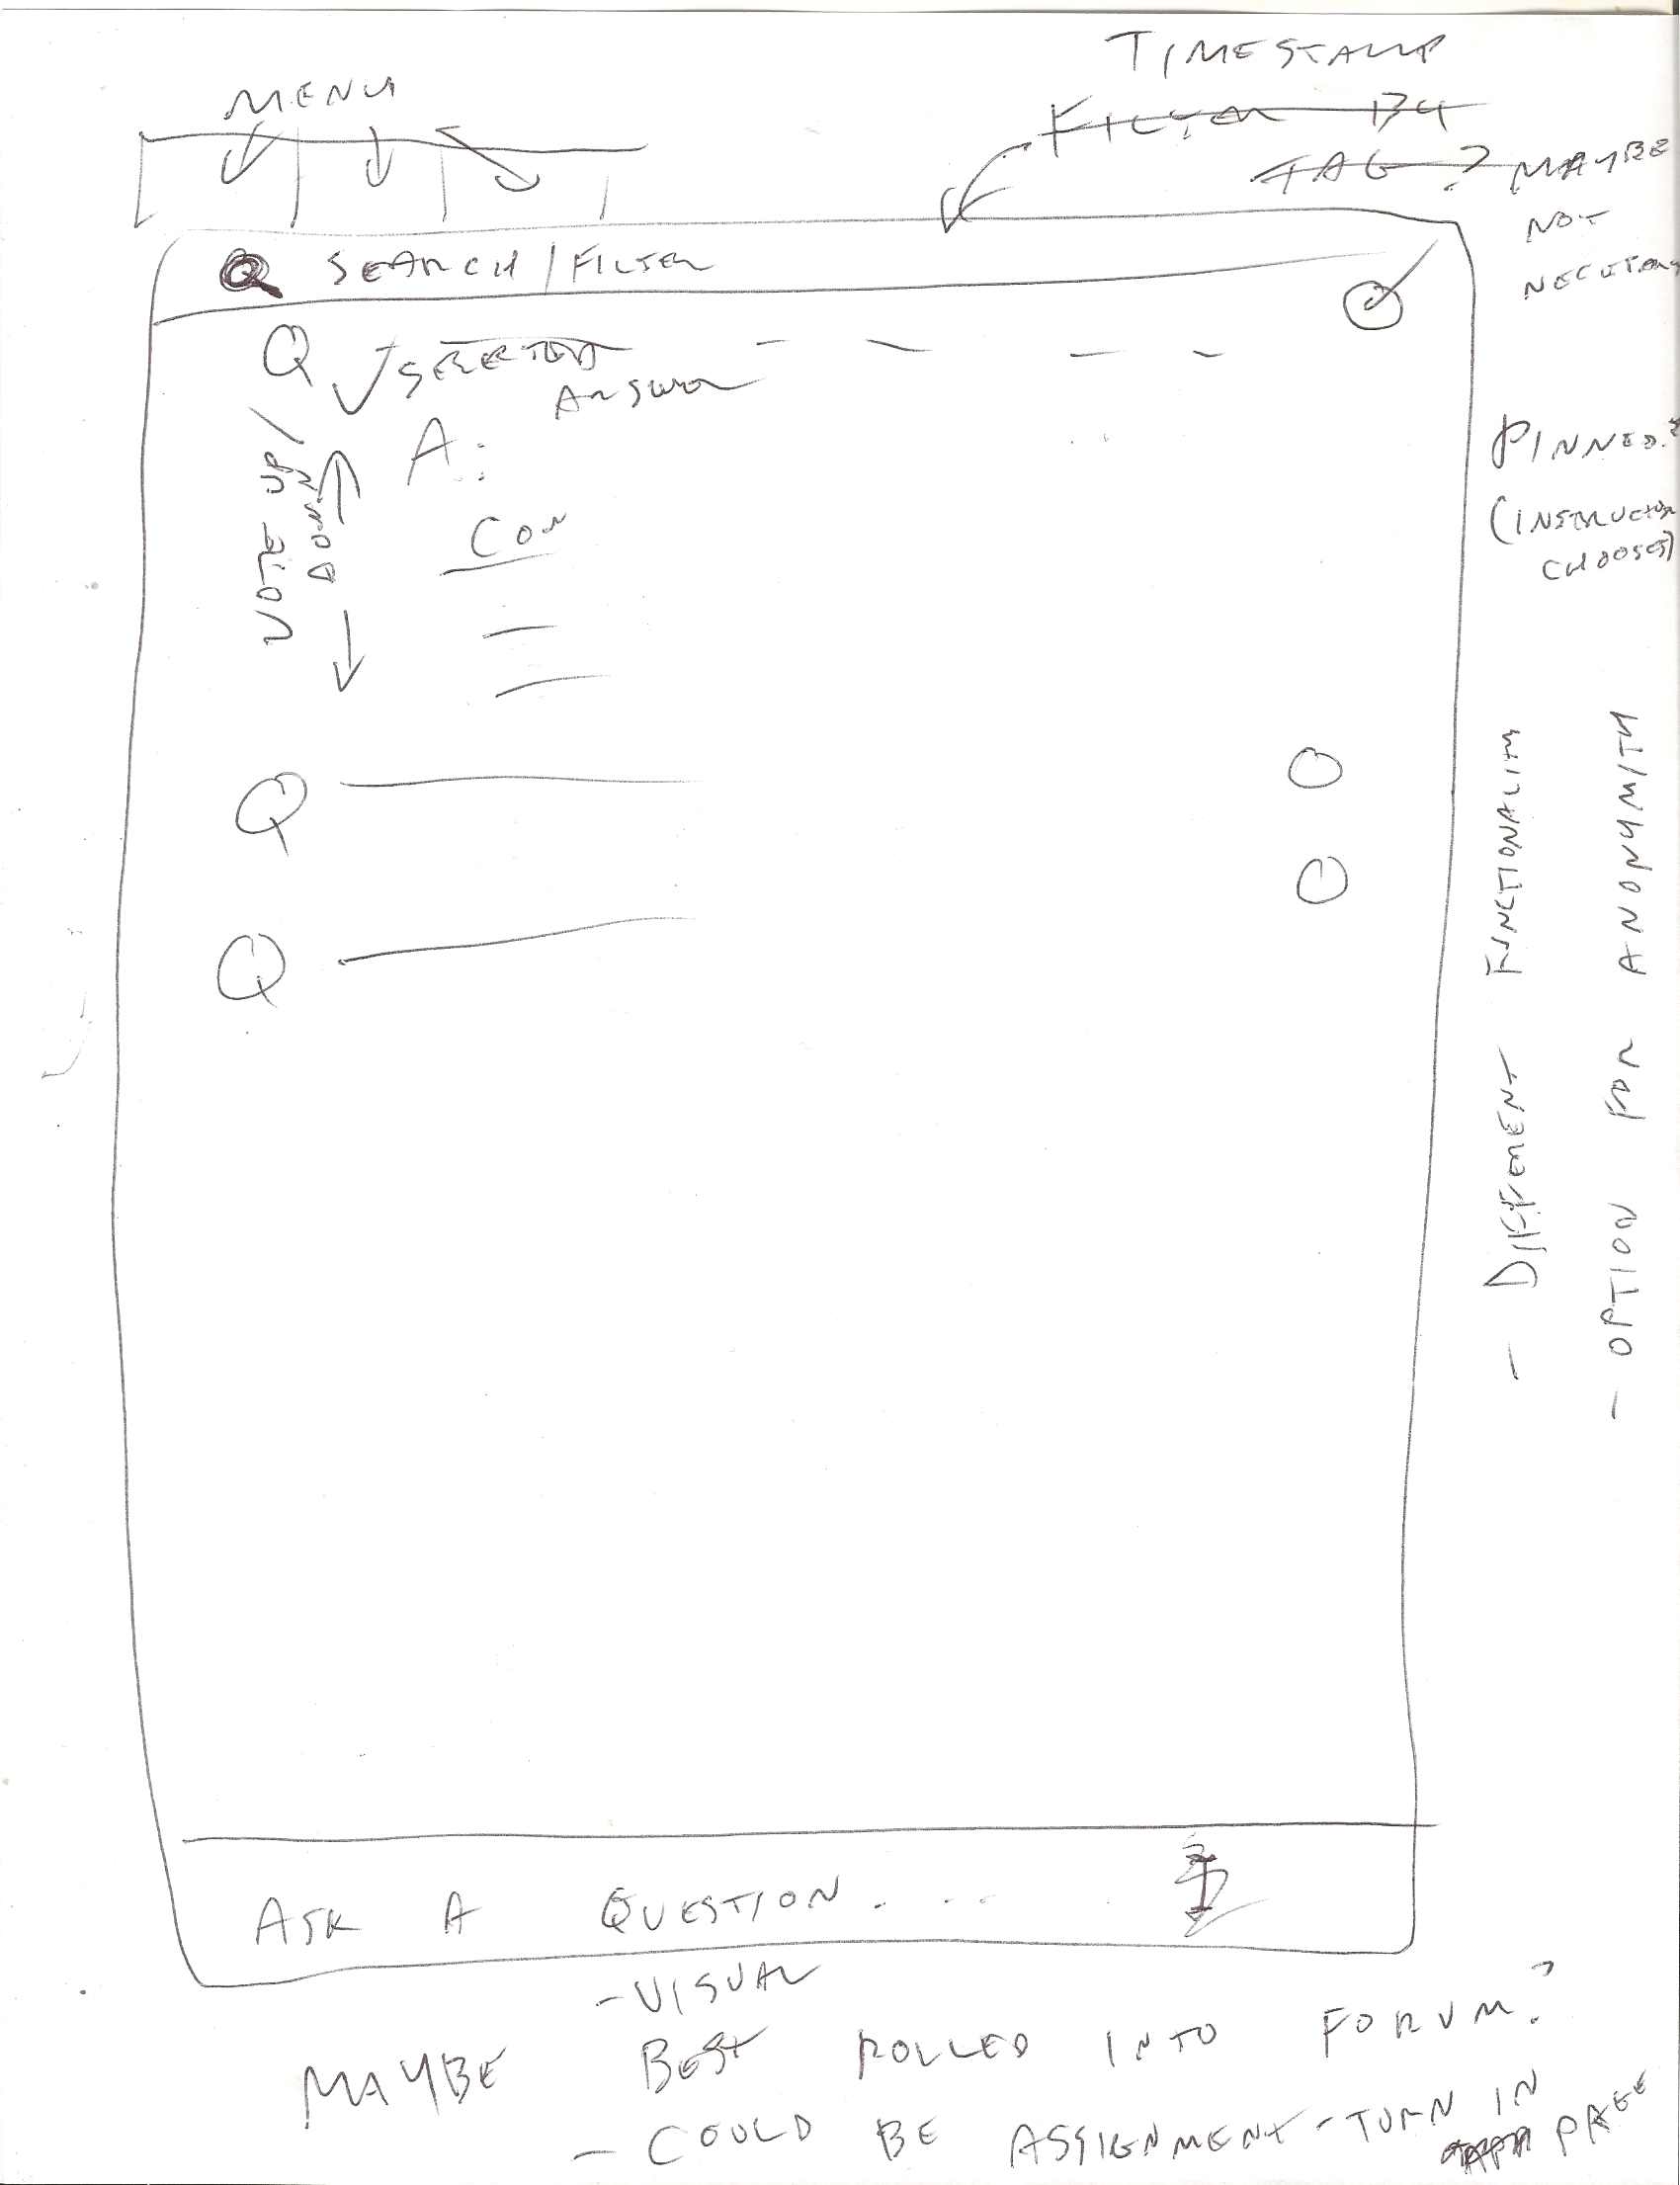 TIMESTAMP
MENU
FILTER BY
TAG ?
MAYBE
NOT
SEARCH / FILTER
Q
SELECTED
ANSWER
A:
VOTE UP /
DOWN
COM
PINNED?
(INSTRUCTOR
CHOOSES)
Q
Q
- DIFFERENT FUNCTIONALITY
- OPTION FOR ANONYMITY
ASK A QUESTION....
- VISUAL
MAYBE BEST ROLLED INTO FORUM?
- COULD BE ASSIGNMENT - TURN IN
PAGE